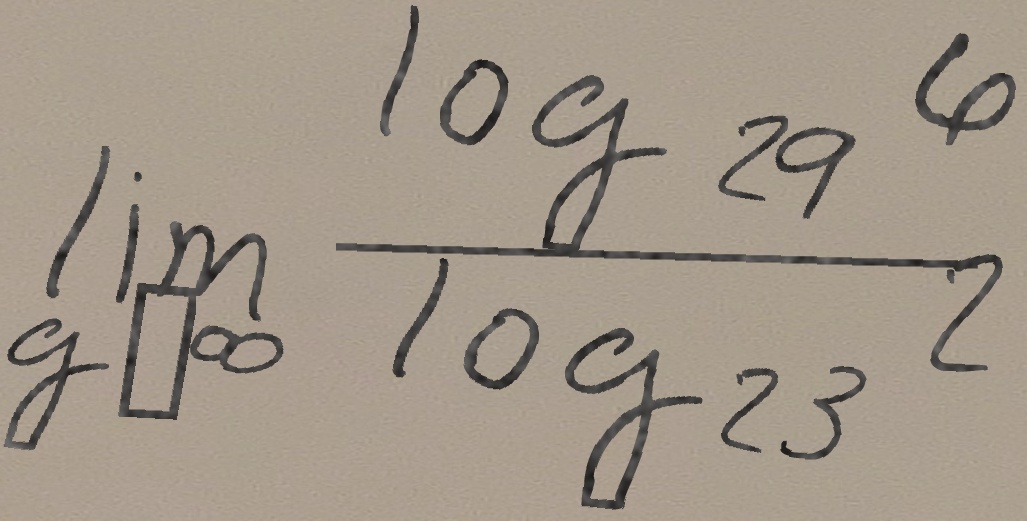 lim g□∞ log 29 6
log 23 2